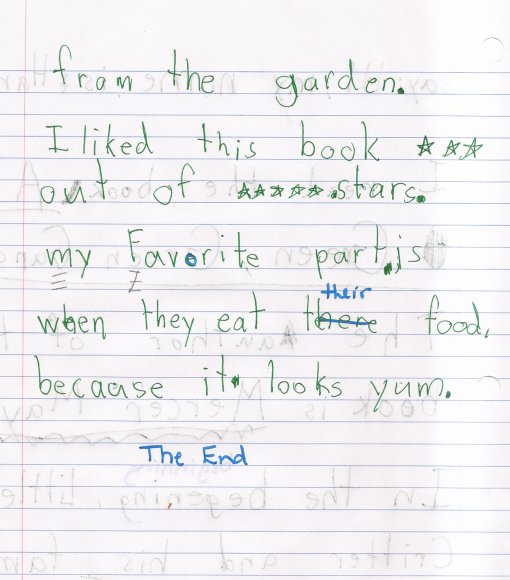 from the garden.
I liked this book ☆☆☆
out of ☆☆☆☆☆ stars.
my Favorite part is
their
when they eat there food,
because it looks yum.
The End